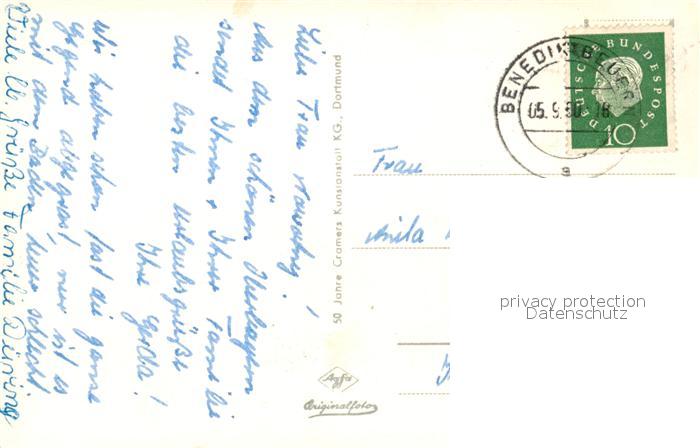 Liebe Frau
Aus dem schönen Oberbayern
sendet Ihnen + Ihrer Familie
die besten Urlaubsgrüße
Ihre Gerda!
Wir haben schon fast die ganze
Gegend abgegrast, nur ist es
mit dem Baden heuer schlecht
Viele lb. Grüße Familie Düring
50 Jahre Cramers Kunstanstalt KG., Dortmund
Agfa
Originalfoto
BENEDIKTBEUERN
05.9.60
a
DEUTSCHE BUNDESPOST
10
Frau
Anita
privacy protection
Datenschutz